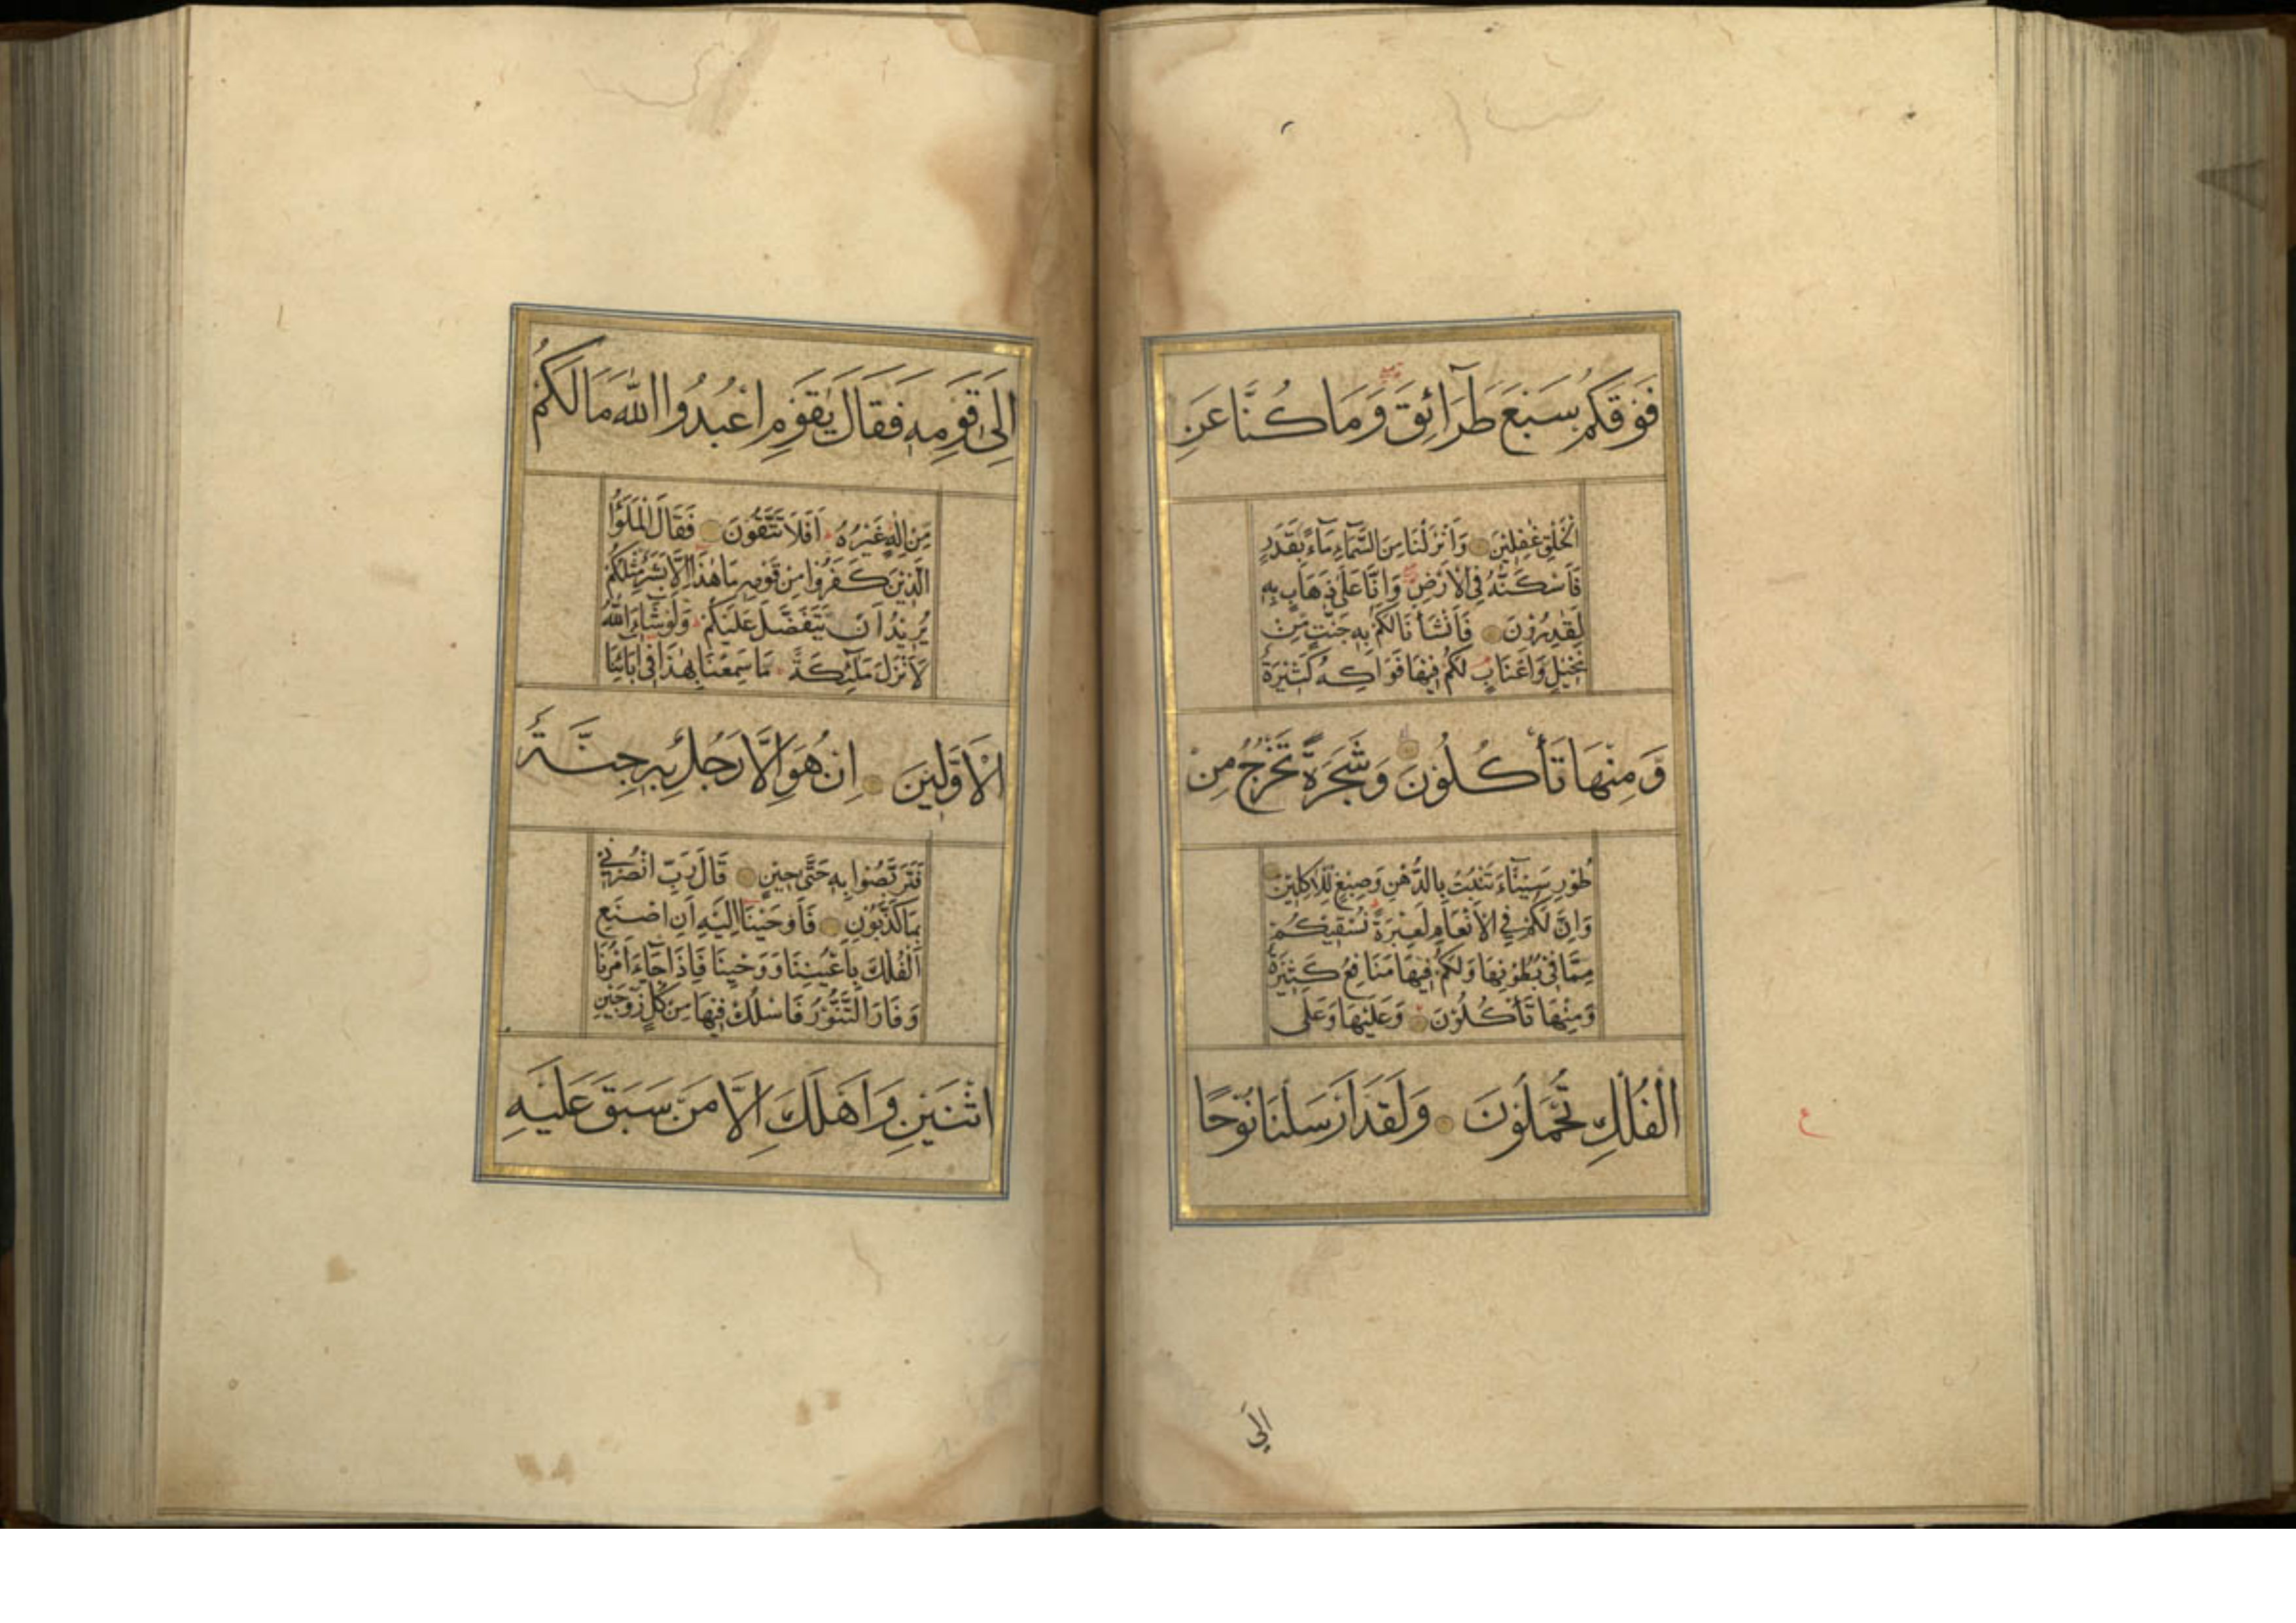 فَوْقَكُمْ سَبْعَ طَرَآئِقَ وَمَا كُنَّا عَنِ
الْخَلْقِ غٰفِلِيْنَ وَاَنْزَلْنَا مِنَ السَّمَآءِ مَآءً بِقَدَرٍ
فَاَسْكَنّٰهُ فِي الْاَرْضِ وَاِنَّا عَلٰى ذَهَابٍ بِهٖ
لَقٰدِرُوْنَ فَاَنْشَاْنَا لَكُمْ بِهٖ جَنّٰتٍ مِّنْ
نَخِيْلٍ وَاَعْنَابٍ لَكُمْ فِيْهَا فَوَاكِهُ كَثِيْرَةٌ
وَّمِنْهَا تَأْكُلُوْنَ وَشَجَرَةً تَخْرُجُ مِنْ
طُوْرِ سَيْنَآءَ تَنْبُتُ بِالدُّهْنِ وَصِبْغٍ لِلْاٰكِلِيْنَ
وَاِنَّ لَكُمْ فِي الْاَنْعَامِ لَعِبْرَةً نُسْقِيْكُمْ
مِمَّا فِيْ بُطُوْنِهَا وَلَكُمْ فِيْهَا مَنَافِعُ كَثِيْرَةٌ
وَمِنْهَا تَأْكُلُوْنَ وَعَلَيْهَا وَعَلَى
الْفُلْكِ تُحْمَلُوْنَ وَلَقَدْ اَرْسَلْنَا نُوْحًا
ع
اِلٰى
اِلٰى قَوْمِهٖ فَقَالَ يٰقَوْمِ اعْبُدُوا اللّٰهَ مَا لَكُمْ
مِّنْ اِلٰهٍ غَيْرُهُ اَفَلَا تَتَّقُوْنَ فَقَالَ الْمَلَؤُا
الَّذِيْنَ كَفَرُوْا مِنْ قَوْمِهٖ مَا هٰذَا اِلَّا بَشَرٌ مِّثْلُكُمْ
يُرِيْدُ اَنْ يَّتَفَضَّلَ عَلَيْكُمْ وَلَوْ شَآءَ اللّٰهُ
لَاَنْزَلَ مَلٰٓئِكَةً مَا سَمِعْنَا بِهٰذَا فِيْ اٰبَآئِنَا
الْاَوَّلِيْنَ اِنْ هُوَ اِلَّا رَجُلٌ بِهٖ جِنَّةٌ
فَتَرَبَّصُوْا بِهٖ حَتّٰى حِيْنٍ قَالَ رَبِّ انْصُرْنِيْ
بِمَا كَذَّبُوْنِ فَاَوْحَيْنَا اِلَيْهِ اَنِ اصْنَعِ
الْفُلْكَ بِاَعْيُنِنَا وَوَحْيِنَا فَاِذَا جَآءَ اَمْرُنَا
وَفَارَ التَّنُّوْرُ فَاسْلُكْ فِيْهَا مِنْ كُلٍّ زَوْجَيْنِ
اثْنَيْنِ وَاَهْلَكَ اِلَّا مَنْ سَبَقَ عَلَيْهِ